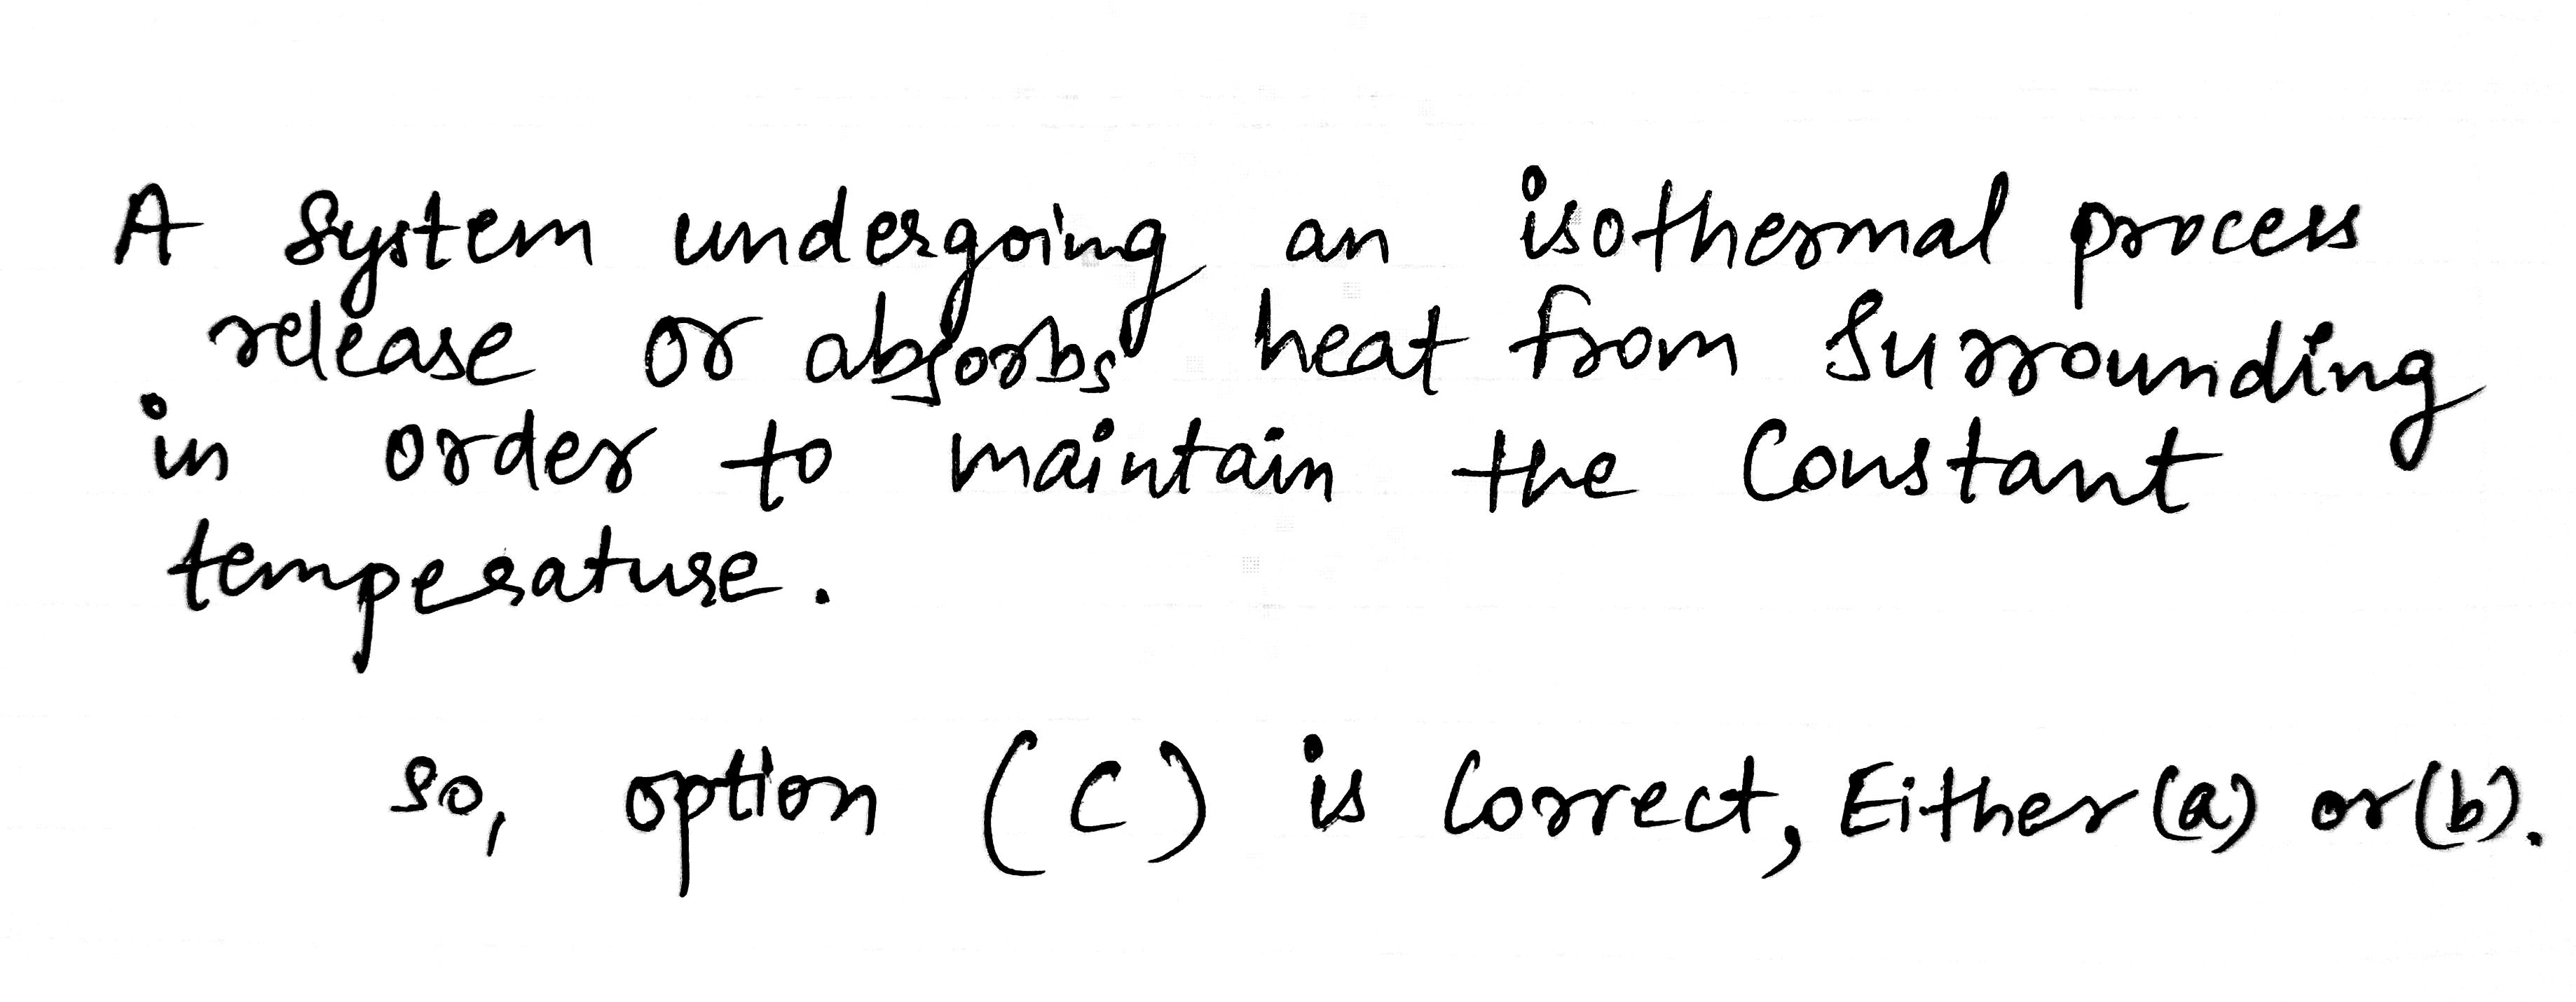 A system undergoing an isothermal process
release or absorbs heat from surrounding
in order to maintain the constant
temperature.
so, option (c) is correct, Either (a) or (b).